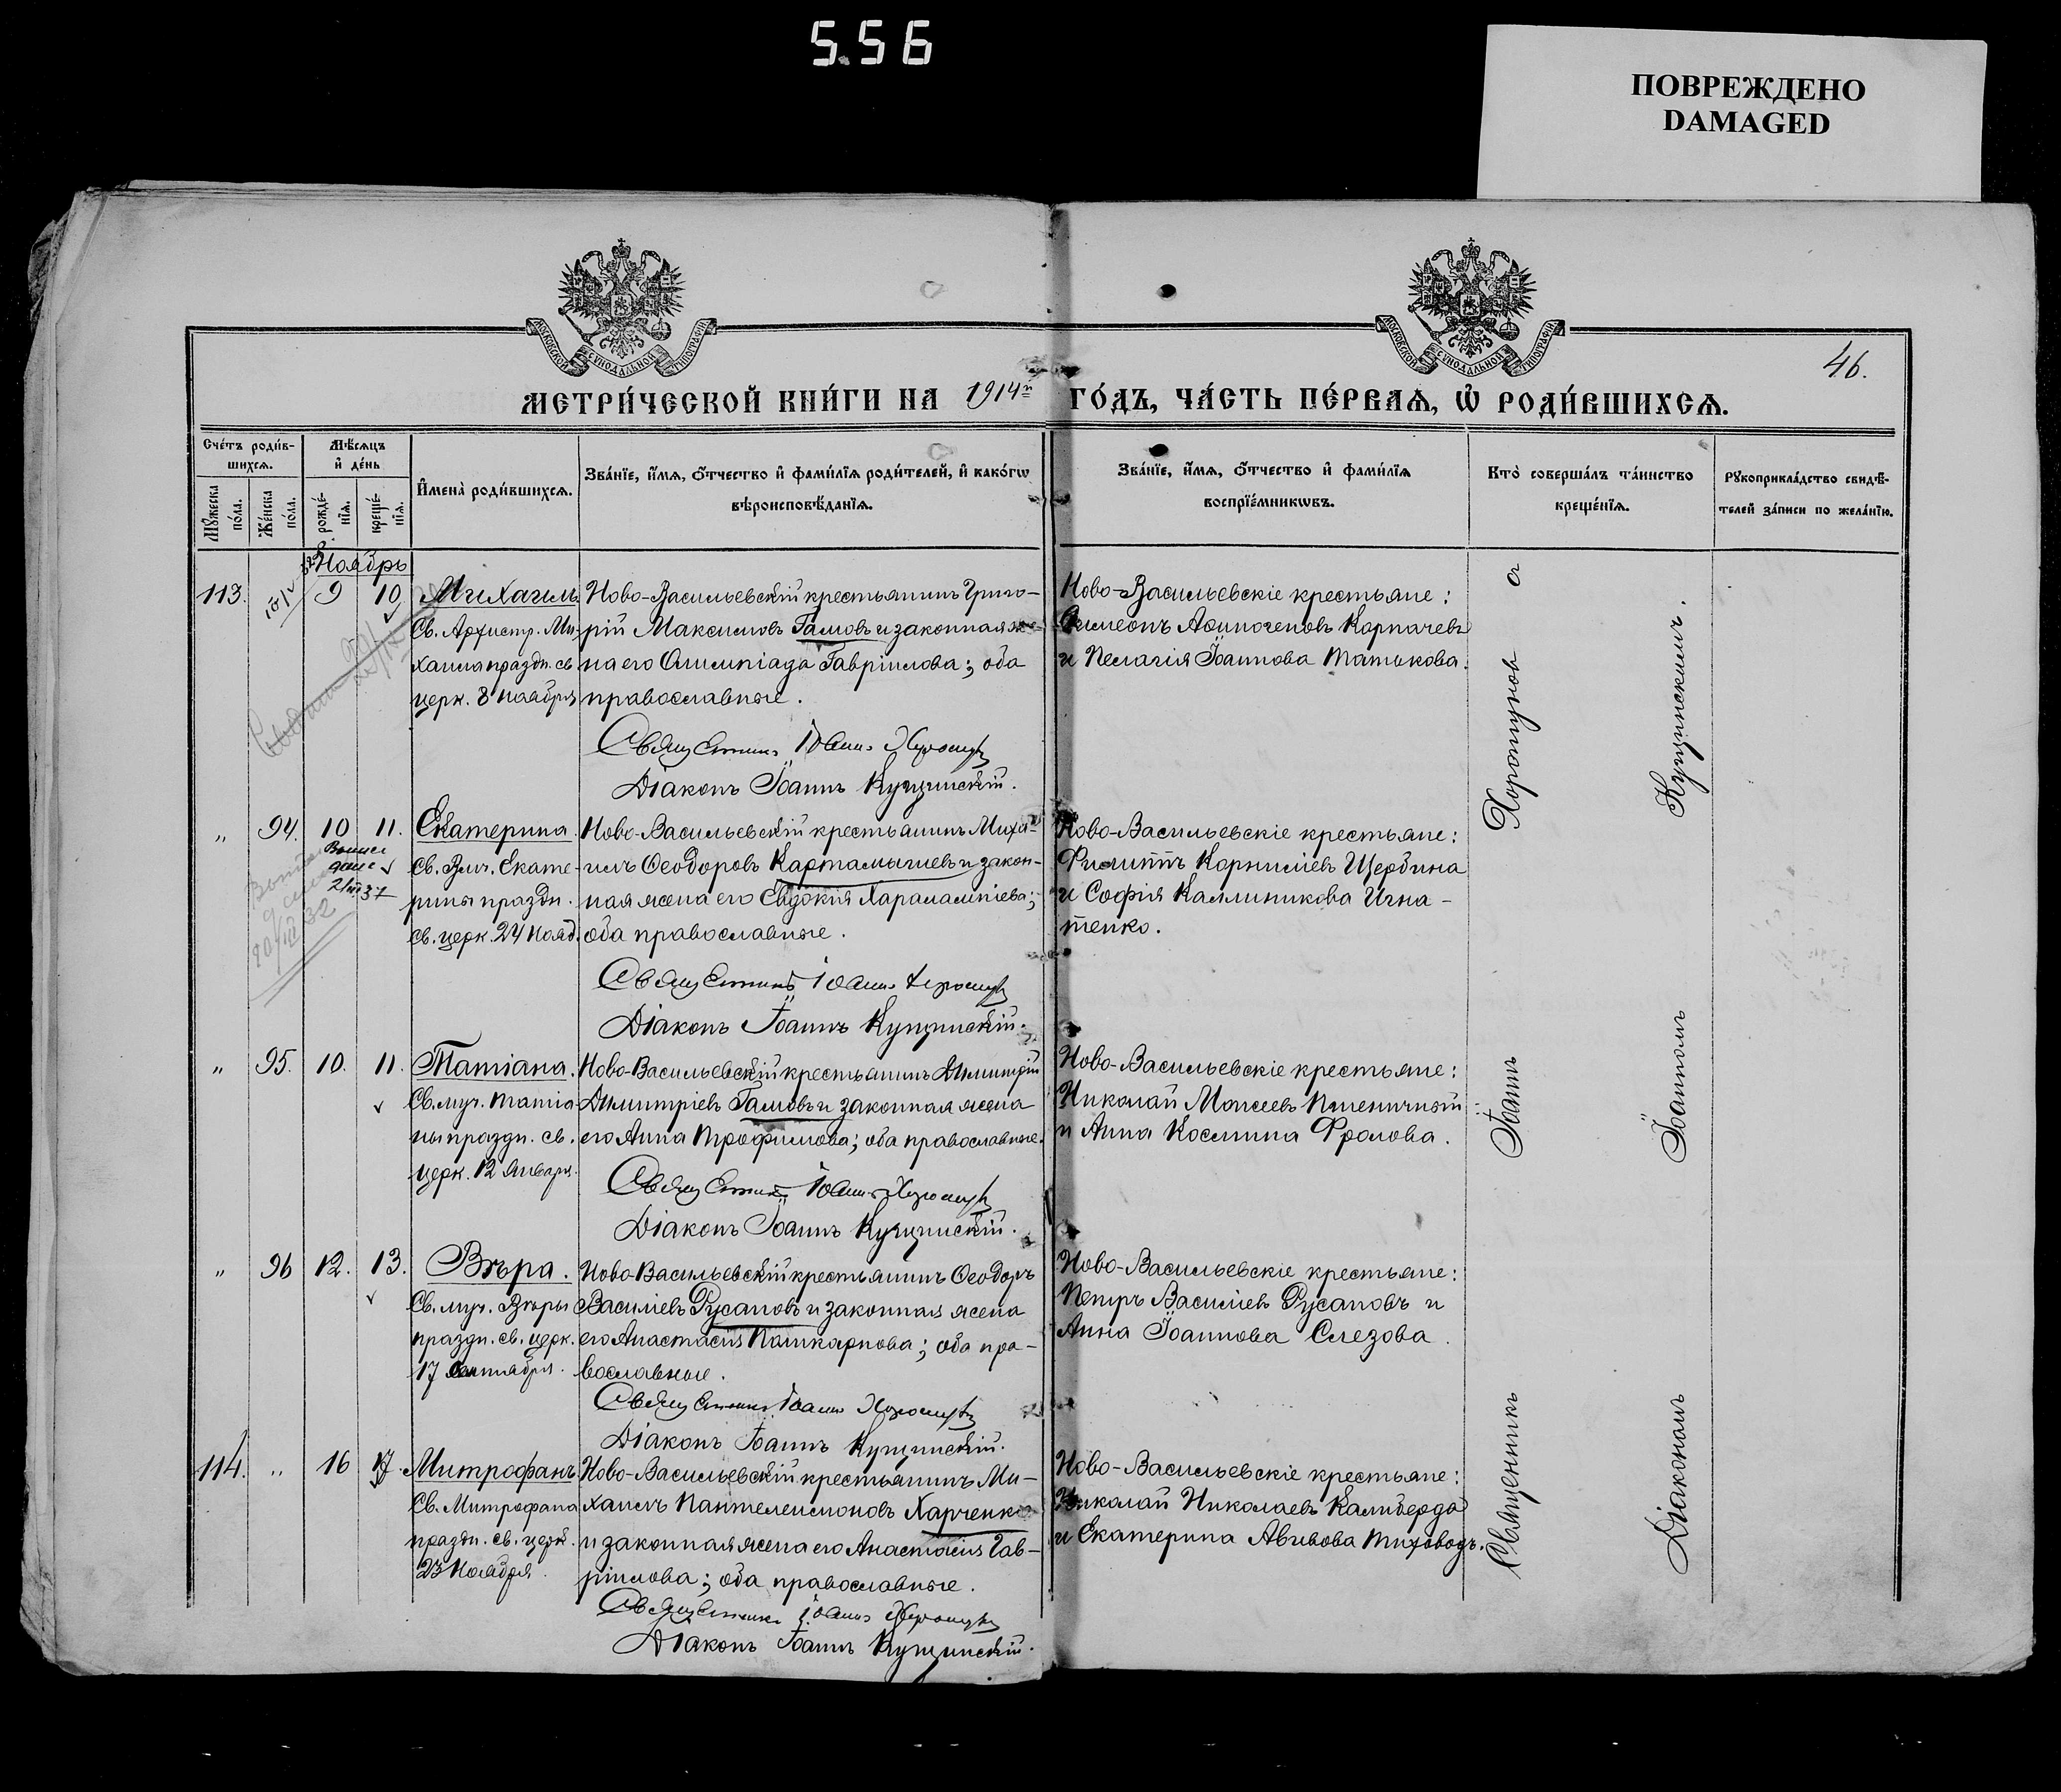 5.56
ПОВРЕЖДЕНО
DAMAGED
МОСКОВСКОЙ СѴНОДАЛЬНОЙ ТИПОГРАФІИ
МОСКОВСКОЙ СѴНОДАЛЬНОЙ ТИПОГРАФІИ
46.
МЕТРИ́ЧЕСКОЙ КНИ́ГИ НА 1914й ГО́ДЪ, ЧА́СТЬ ПЕ́РВАѦ, Ѡ҆ РОДИ́ВШИХСѦ.
Сче́тъ роди́в-
шихсѧ.
Мꙋ́жеска
по́ла.
Же́нска
по́ла.
Мѣ́сѧцъ
и҆ де́нь
рожде́-
нїѧ.
креще́-
нїѧ.
И҆мена̀ роди́вшихсѧ.
Зва́нїе, и҆́мѧ, о҆́тчество и҆ фами́лїѧ роди́телей, и҆ како́гѡ
вѣроисповѣ́данїѧ.
Зва́нїе, и҆́мѧ, о҆́тчество и҆ фами́лїѧ
воспрїе́мникѡвъ.
Кто̀ соверша́лъ та́инство
креще́нїѧ.
Рꙋкоприкла́дство свидѣ́-
телей за́писи по жела́нїю.
Ноябрь
113.
9
10
Михаилъ
Св. Архистр. Ми-
хаила праздн. св.
церк. 8 Ноября
Ново-Васильевскій крестьянинъ Григо-
рій Максимовъ Гамовъ и законная же-
на его Олимпіада Гавріилова; оба
православные.
Священникъ Іоаннъ Хоромунъ
Діаконъ Іоаннъ Кущинскій.
Ново-Васильевскіе крестьяне:
Симеонъ Аѳиногеновъ Карпачевъ
и Пелагія Іоаннова Татькова.
„ 94. 10 11.
Екатерина
Св. Влч. Екате-
рины праздн.
св. церк. 24 Нояб.
Ново-Васильевскій крестьянинъ Миха-
илъ Ѳеодоровъ Картамышевъ и закон-
ная жена его Евдокія Харалампіева;
оба православные.
Священникъ Іоаннъ Хоромунъ
Діаконъ Іоаннъ Кущинскій.
Ново-Васильевскіе крестьяне:
Филиппъ Корниліевъ Щербина
и Софія Каллиникова Игна-
тенко.
„ 95. 10. 11.
Татіана.
Св. муч. Татіа-
ны праздн. св.
церк. 12 Января.
Ново-Васильевскій крестьянинъ Димитрій
Димитріевъ Гамовъ и законная жена
его Анна Трофимова; оба православные.
Священникъ Іоаннъ Хоромунъ
Діаконъ Іоаннъ Кущинскій.
Ново-Васильевскіе крестьяне:
Николай Моисеевъ Пшеничный
и Анна Космина Фролова.
„ 96 12. 13.
Вѣра.
Св. муч. Вѣры
праздн. св. церк.
17 Сентября.
Ново-Васильевскій крестьянинъ Ѳеодоръ
Василіевъ Русановъ и законная жена
его Анастасія Поликарпова; оба пра-
вославные.
Священникъ Іоаннъ Хоромунъ
Діаконъ Іоаннъ Кущинскій.
Ново-Васильевскіе крестьяне:
Петръ Василіевъ Русановъ и
Анна Іоаннова Слезова.
114. „ 16 17.
Митрофанъ
Св. Митрофана
праздн. св. церк.
23 Ноября.
Ново-Васильевскій крестьянинъ Ми-
хаилъ Пантелеимоновъ Харченко
и законная жена его Анастасія Гав-
ріилова; оба православные.
Священникъ Іоаннъ Хоромунъ
Діаконъ Іоаннъ Кущинскій.
Ново-Васильевскіе крестьяне:
Николай Николаевъ Калиберда
и Екатерина Авивова Тиховодъ.
Священникъ Іоаннъ Хоромуновъ с
Діакономъ Іоанномъ Кущинскимъ.